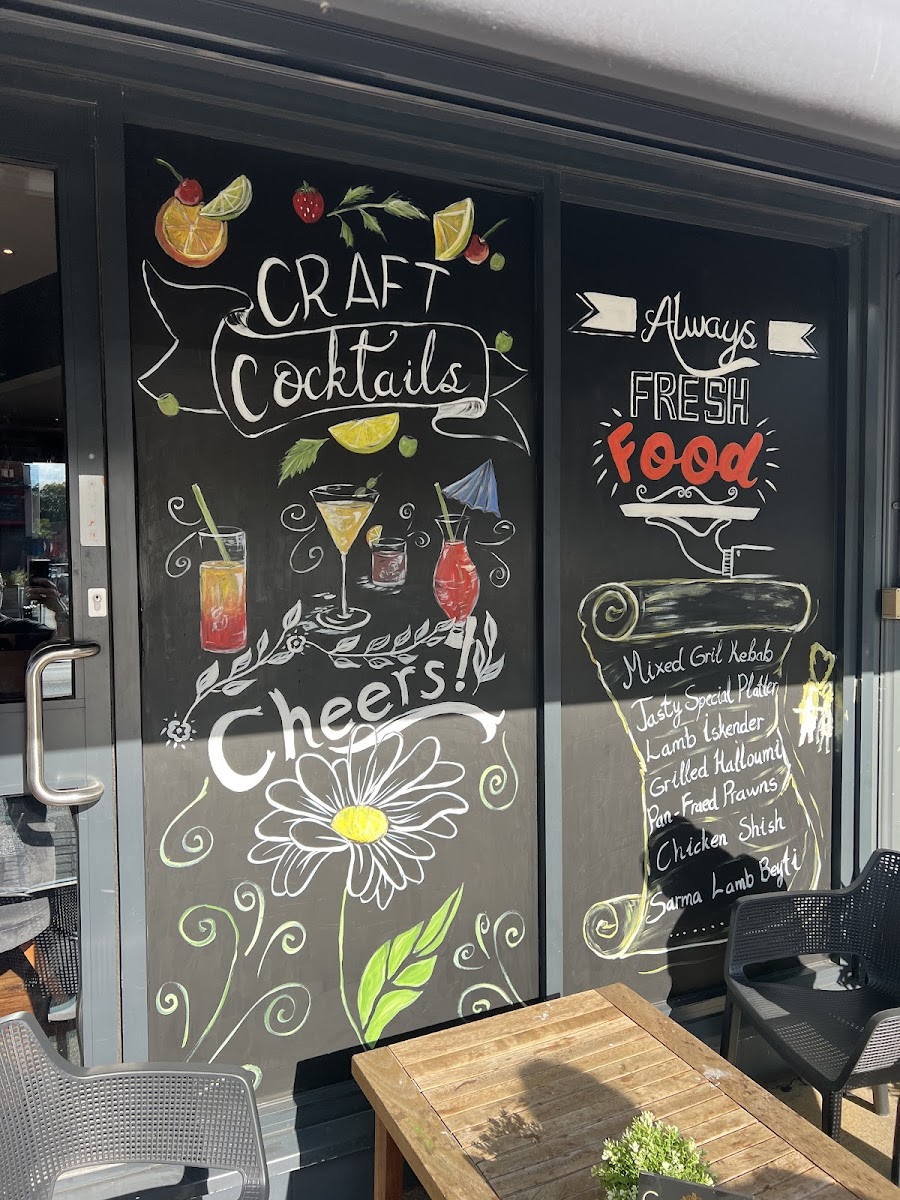 CRAFT
Cocktails
Cheers!
Always
FRESH
Food
Mixed Gril Kebab
Tasty Special Platter
Lamb İskender
Grilled Halloumi
Pan-Fraed Prawns
Chicken Shish
Sarma Lamb Beyti
.......